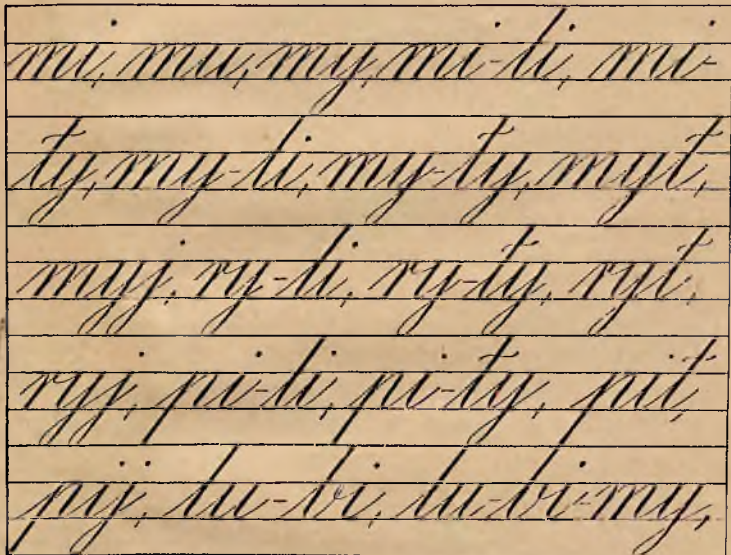 mi, mu, my, mi-li, mi-
ty, my-li, my-ty, myt,
myj, ry-li, ry-ty, ryt,
ryj, pi-li, pi-ty, pit,
pij, lu-bi, lu-bi-my,